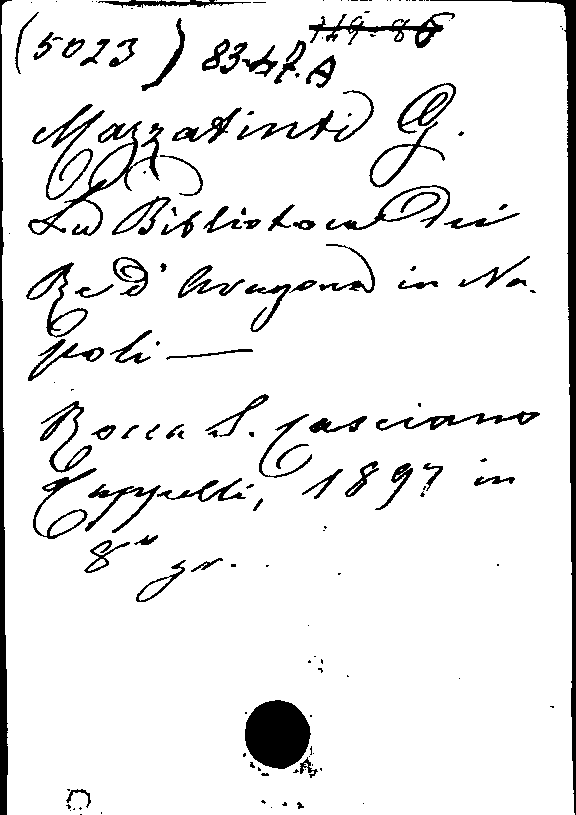 (5023) 83.47.A 149-86
Mazzatinti G.
La Biblioteca dei
Re d'Aragona in Na-
poli —
Rocca S. Casciano
Cappelli, 1897 in
8º gr.